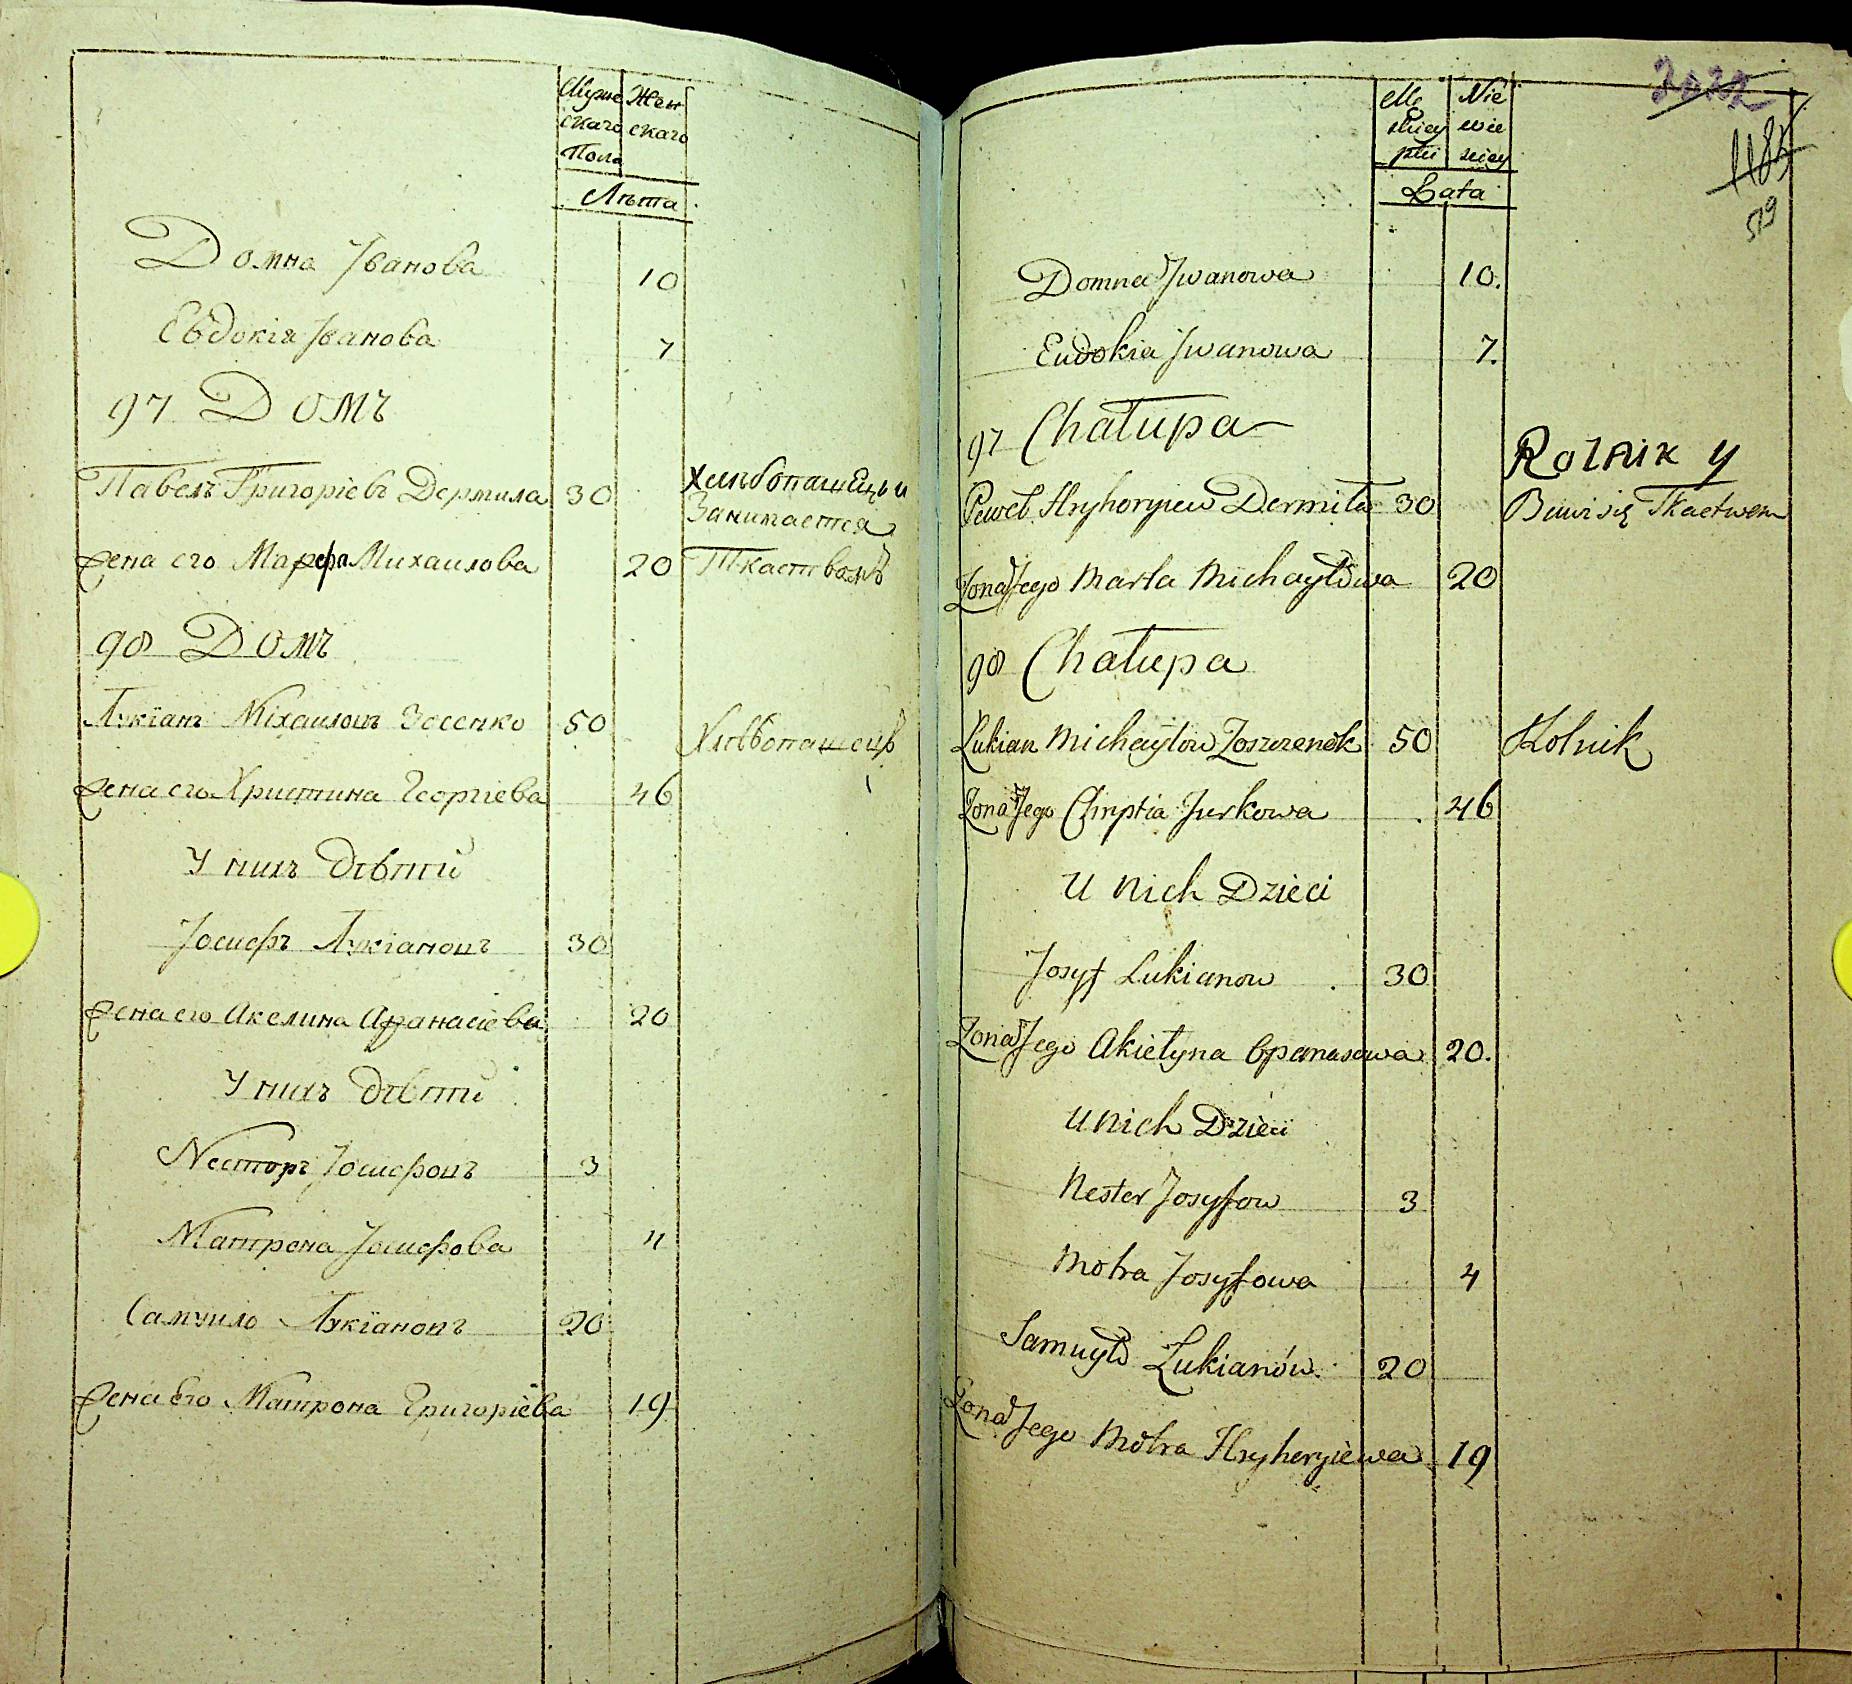 Муже Жен
скаго скаго
Пола
Лѣта
Домна Іванова 10
Евдокія Іванова 7
97 Домъ
Павелъ Григоріевъ Дермила 30 Хлѣбопашецъ и
Занимается
жена его Марфа Михаилова 20 Ткаствомъ
98 Домъ
Лукіанъ Міхаиловъ Зосенко 50 Хлѣбопашецъ
жена его Христина Георгіева 46
У нихъ дѣти
Іосифъ Лукіановъ 30
жена его Акелина Афанасіева 20
У нихъ дѣти
Несторъ Іосифовъ 3
Матрона Іосифова 4
Самуило Лукіановъ 20
жена Его Матрона Григоріева 19
2022
1185
519
Mę Nie
skiey wie
płci sciey
Lata
Domna Jwanowa 10.
Eudokia Jwanowa 7.
97 Chałupa
Rolnik y
Paweł Hryhoryiew Dermiła 30 Bawi się Tkactwem
Zona Jego Marta Michayłowa 20
98 Chałupa
Łukian Michayłow Zoszczenok 50 Rolnik
Zona Jego Jurkowa 46
U Nich Dzieci
Josyf Łukianow 30
Zona Jego Akiełyna Opanasowa 20.
U Nich Dzieci
Nester Josyfow 3
Motra Josyfowa 4
Samuyło Łukianów 20
Zona Jego Motra Hryhoryiewa 19